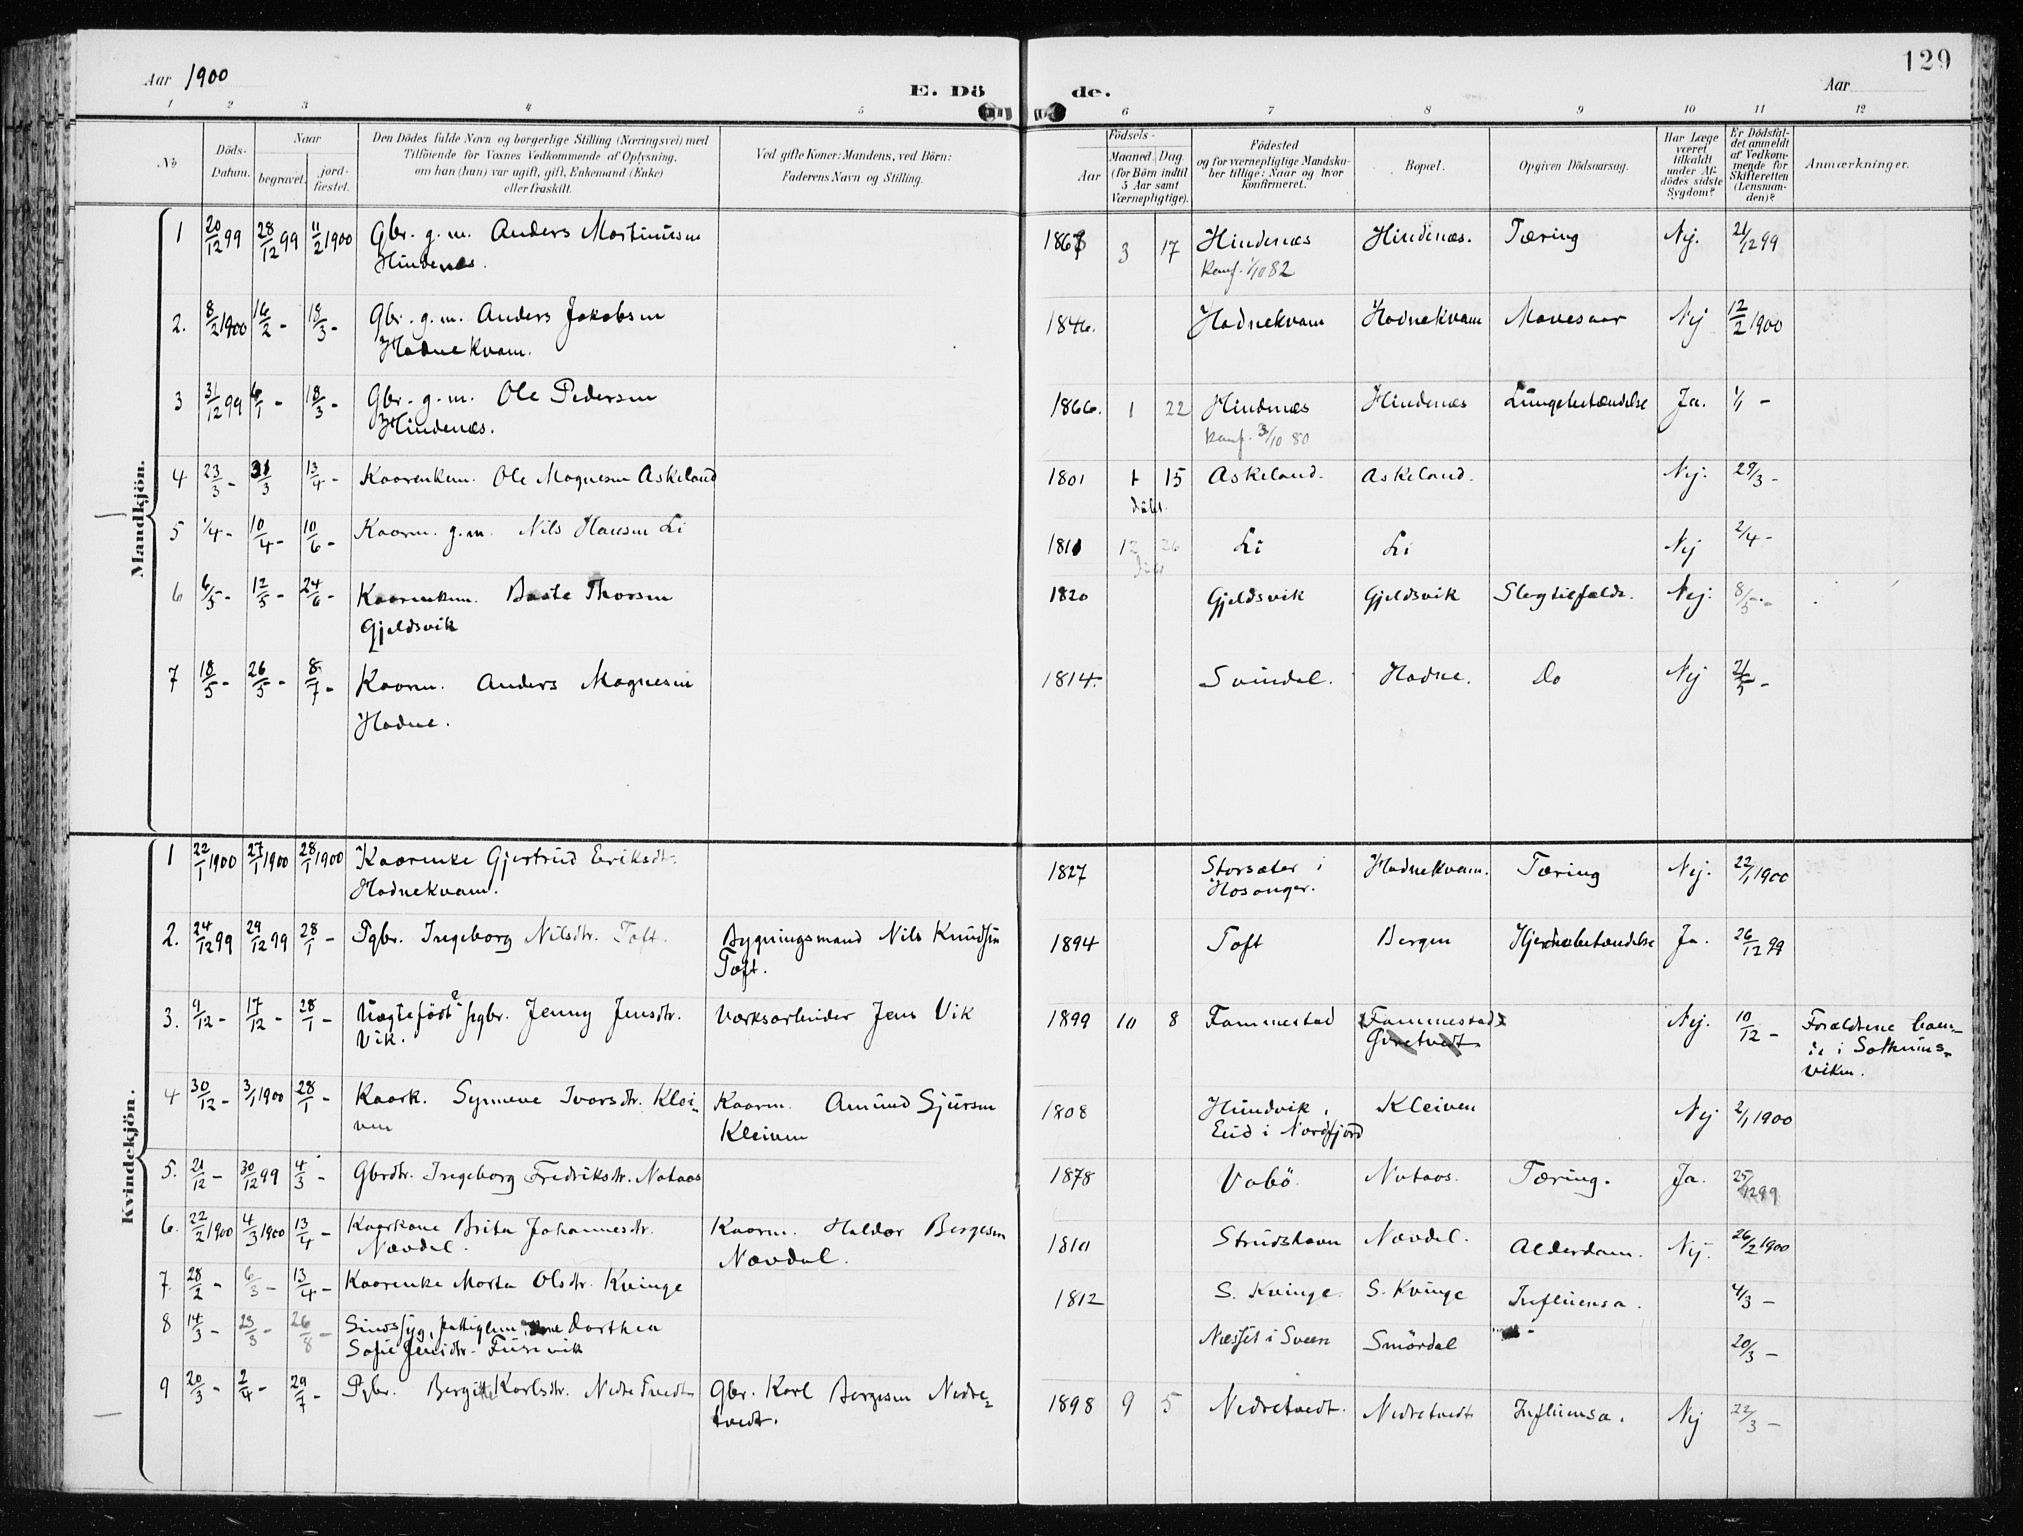 129
Aar 1900
E. Dö de.
Aar
1 2 3 4 5 6 7 8 9 10 11 12
No
Döds-Datum.
Naar
begravet.
jord-fæstet.
Den Dödes fulde Navn og borgerlige Stilling (Næringsvei) med
Tilföiende for Voxnes Vedkommende af Oplysning,
om han (hun) var ugift, gift, Enkemand (Enke)
eller fraskilt.
Ved gifte Koner: Mandens, ved Börn:
Faderens Navn og Stilling.
Födsels-
Aar
Maaned. Dag
(for Börn indtil
5 Aar samt
Værnepligtige).
Födested
og for værnepligtige Mandska-
ber tillige: Naar og hvor
Konfirmeret.
Bopæl.
Opgiven Dödsaarsag.
Har Læge
været
tilkaldt
under Af-
dödes sidste
Sygdom?
Er Dödsfal-
det anmeldt
af Vedkom-
mende for
Skifteretten
(Lensman-
den)?
Anmærkninger.
Mandkjön.
1 20/12 99 28/12 99 11/2 1900 Gbr. g.m. Anders Martinusen 3 17 Hindenæs Hindenæs. Tæring Nej. 21/12 99
Hindenæs. Konf. 1/10 82
2. 8/2 1900 16/2 - 18/3 - Gbr. g.m. Anders Jakobsen 1846. Hodnekvam Hodnekvam Mavesaar Nej 12/2 1900
Hodnekvam.
3 31/12 99 6/1 - 18/3 - Gbr. g.m. Ole Pedersen 1866. 1 22 Hindenæs Hindenæs Lungebetændelse Ja. 1/1 -
Hindenæs. Konf. 3/10 80
4 23/3 - 31/3 13/4 - Kaarenkem. Ole Magnesen Askeland 1801 1 15 Askeland. Askeland. Nej. 29/3 -
döbt.
5 1/4 - 10/4 - 10/6 - Kaarm. g.m. Nils Hansen Li 1811 12 26 Li Li Nej 2/4 -
döbt
6 6/5 - 12/5 - 24/6 - Kaarenkem. Baste Thorsen 1820 Gjeldsvik Gjeldsvik Slagtilfælde. Nej. 8/5 -
Gjeldsvik
7 18/5 - 26/5 - 8/7 - Kaarm. Anders Magnesen 1814. Svindal. Hodne. Do Nej 21/5 -
Hodne.
Kvindekjön.
1 22/1 1900 27/1 1900 28/1 1900 Kaarenke Gjertrud Eriksdtr. 1827 Storsæter i Hodnekvam. Tæring Nej. 22/1 1900
Hodnekvam. Hosanger.
2. 24/12 99 29/12 99 28/1 - Pgbr. Ingeborg Nilsdtr. Toft. Bygningsmand Nils Knudsen 1894 Toft Bergen Hjernebetændelse Ja. 26/12 99
Toft.
3. 9/12 - 17/12 - 28/1 - Uægtefödt pgbr. Jenny Jensdtr. Værksarbeider Jens Vik 1899 10 8 Fammestad Fammestad Nej. 10/12 - Forældrene boen-
Vik. de i Salhus-
viken.
4 30/12 - 3/1 1900 28/1 - Kaark. Synneve Ivarsdtr. Klei- Kaarm. Amund Sjursen 1808 Hundvik, Kleiven Nej 2/1 1900
ven Kleiven Eid i Nordfjord
5. 21/12 - 30/12 99 4/3 - Gbrdtr. Ingeborg Fredriksdtr. Nataas 1878 Vabö. Nataas. Tæring. Ja. 25/12 99
6. 22/2 1900 4/3 1900 13/4 - Kaarkone Brita Johannesdtr. Kaarm. Haldor Bergesen 1811 Strudshavn Nævdal. Alderdom. Nej. 26/2 1900
Nævdal. Nævdal.
7. 28/2 - 6/3 - 13/4 - Kaarenke Marta Olsdtr. Kvinge 1812 S. Kvinge. S. Kvinge Influensa. 4/3 -
8 14/3 - 23/3 - 26/8 - Sindssyg, fattiglem Dorthea Næsset i Sveen Smördal 20/3 -
Sofie Jensdtr. Furesvik
9 20/3 - 2/4 - 29/7 - Pgbr. Bergitte Karlsdtr. Nedre Tvedt Gbr. Karl Bergesen Nedre- 1898 9 5 Nedretvedt. Nedretvedt Influensa. Nej 22/3 -
tvedt.